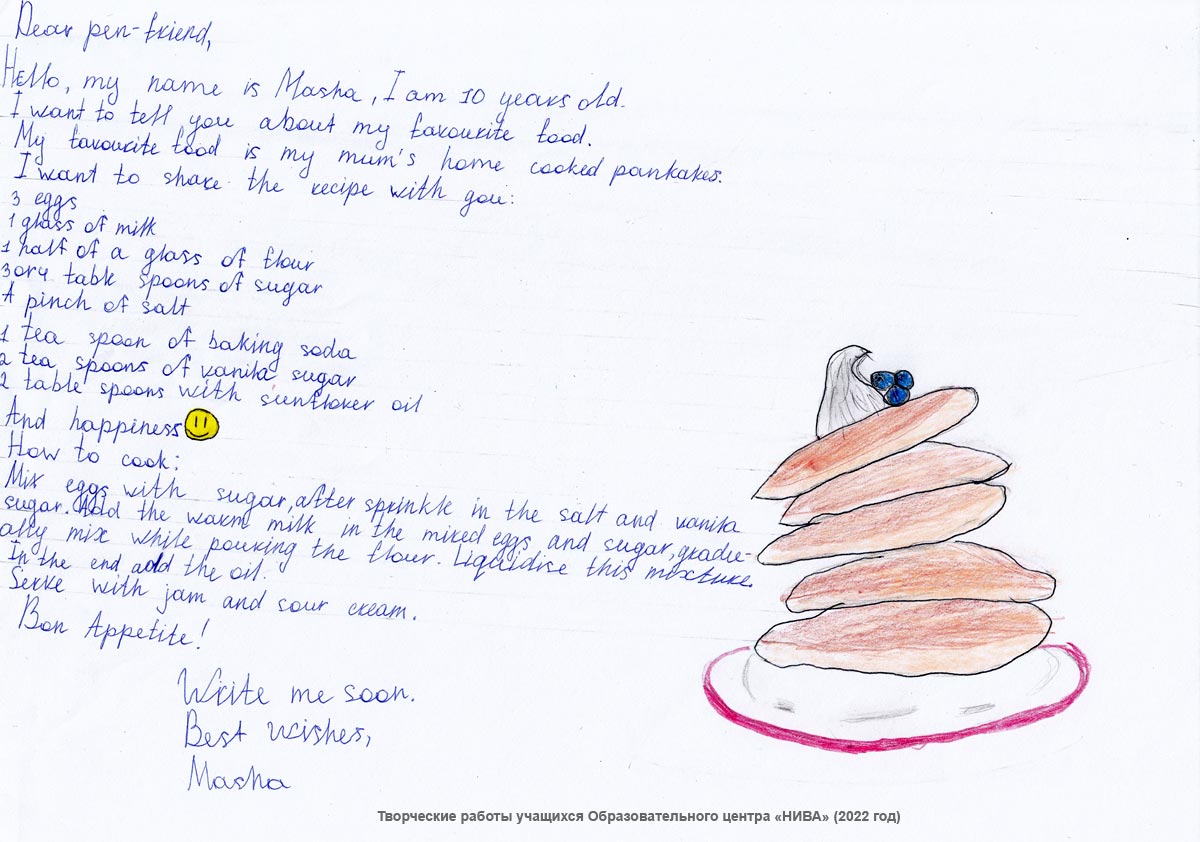 Dear pen-friend,
Hello, my name is Masha, I am 10 years old.
I want to tell you about my favourite food.
My favourite food is my mum's home cooked pankakes.
I want to share the recipe with you:
3 eggs
1 glass of milk
1 half of a glass of flour
3 or 4 table spoons of sugar
A pinch of salt
1 tea spoon of baking soda
2 tea spoons of vanila sugar
2 table spoons with sunflover oil
And happiness
How to cook:
Mix eggs with sugar, after sprinkle in the salt and vanila
sugar. Add the warm milk in the mixed eggs and sugar, gradu-
ally mix while pouring the flour. Liquidise this mixture.
In the end add the oil.
Serve with jam and sour cream.
Bon Appetite!
Write me soon.
Best wishes,
Masha
Творческие работы учащихся Образовательного центра «НИВА» (2022 год)